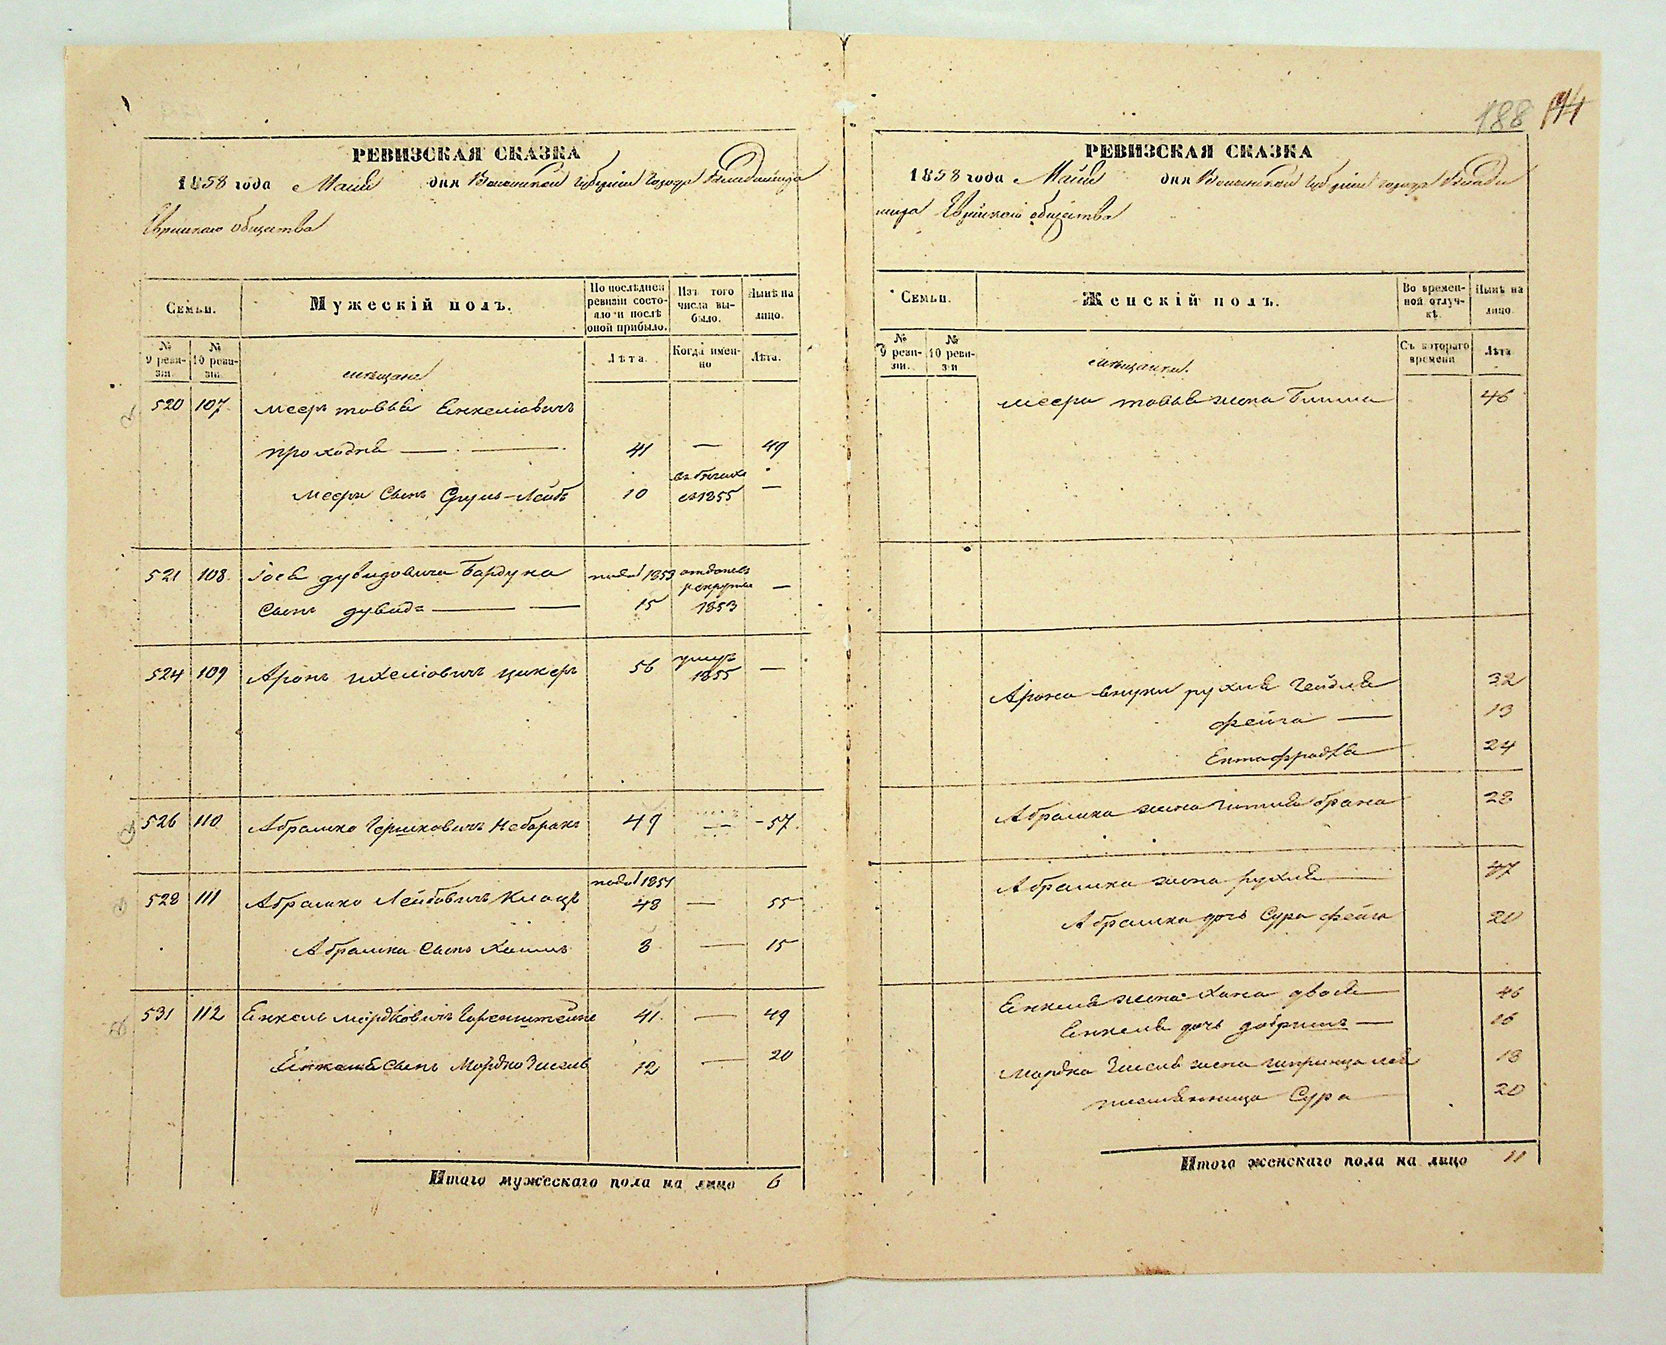 188 114
РЕВИЗСКАЯ СКАЗКА
1858 года Маія дня Волынской Губерніи Города Владимира
Еврейскаго общества
Семьи.
Мужескій полъ.
По последней ревизіи состояло и послѣ оной прибыло.
Изъ того числа выбыло.
Нынѣ на лицо.
№ 9 ревизіи.
№ 10 ревизіи.
Лѣта.
Когда именно
Лѣта.
мѣщане
520 107 Меер товья Енкеліовичъ
проходна 41 — 49
Меера Сынъ Сруль-Лейбъ 10 въ бегахъ съ 1855 —
521 108 дувидовича Бардуна
Сынъ дувидъ 15 отданъ в рекруты 1853 —
524 109 Аронъ Ихеліовичъ цикеръ 56 умеръ 1855 —
526 110 Абрамко Гершковичъ Неборакъ 49 — 57
528 111 Абрамко Лейбовичъ Клоцъ 1851 48 — 55
Абрамка Сынъ Хаимъ 8 — 15
531 112 Енкель Мордковичъ Горенштейнъ 41 — 49
Енкеля Сынъ Мордко Зисель 12 — 20
Итого мужескаго пола на лицо 6
РЕВИЗСКАЯ СКАЗКА
1858 года Маія дня Волынской Губерніи города Влади
мира Еврейскаго общества
Семьи.
Женскій полъ.
Во временной отлучкѣ.
Нынѣ на лицо.
№ 9 ревизіи.
№ 10 ревизіи
Съ котораго времени
Лѣта
мѣщанки
Меера товья жена Блима 46
Арона внуки рухля Гейдля 32
фейга — 13
Ентафрадля 24
Абрамка жена Гитля брана 28
Абрамка жена рухля 47
Абрамка дочь Сура фейга 20
Енкеля жена Хана двося 46
Енкеля дочь добришъ — 16
Мордка Зиселя жена шпринца лея 18
племянница Сура 20
Итого женскаго пола на лицо 11